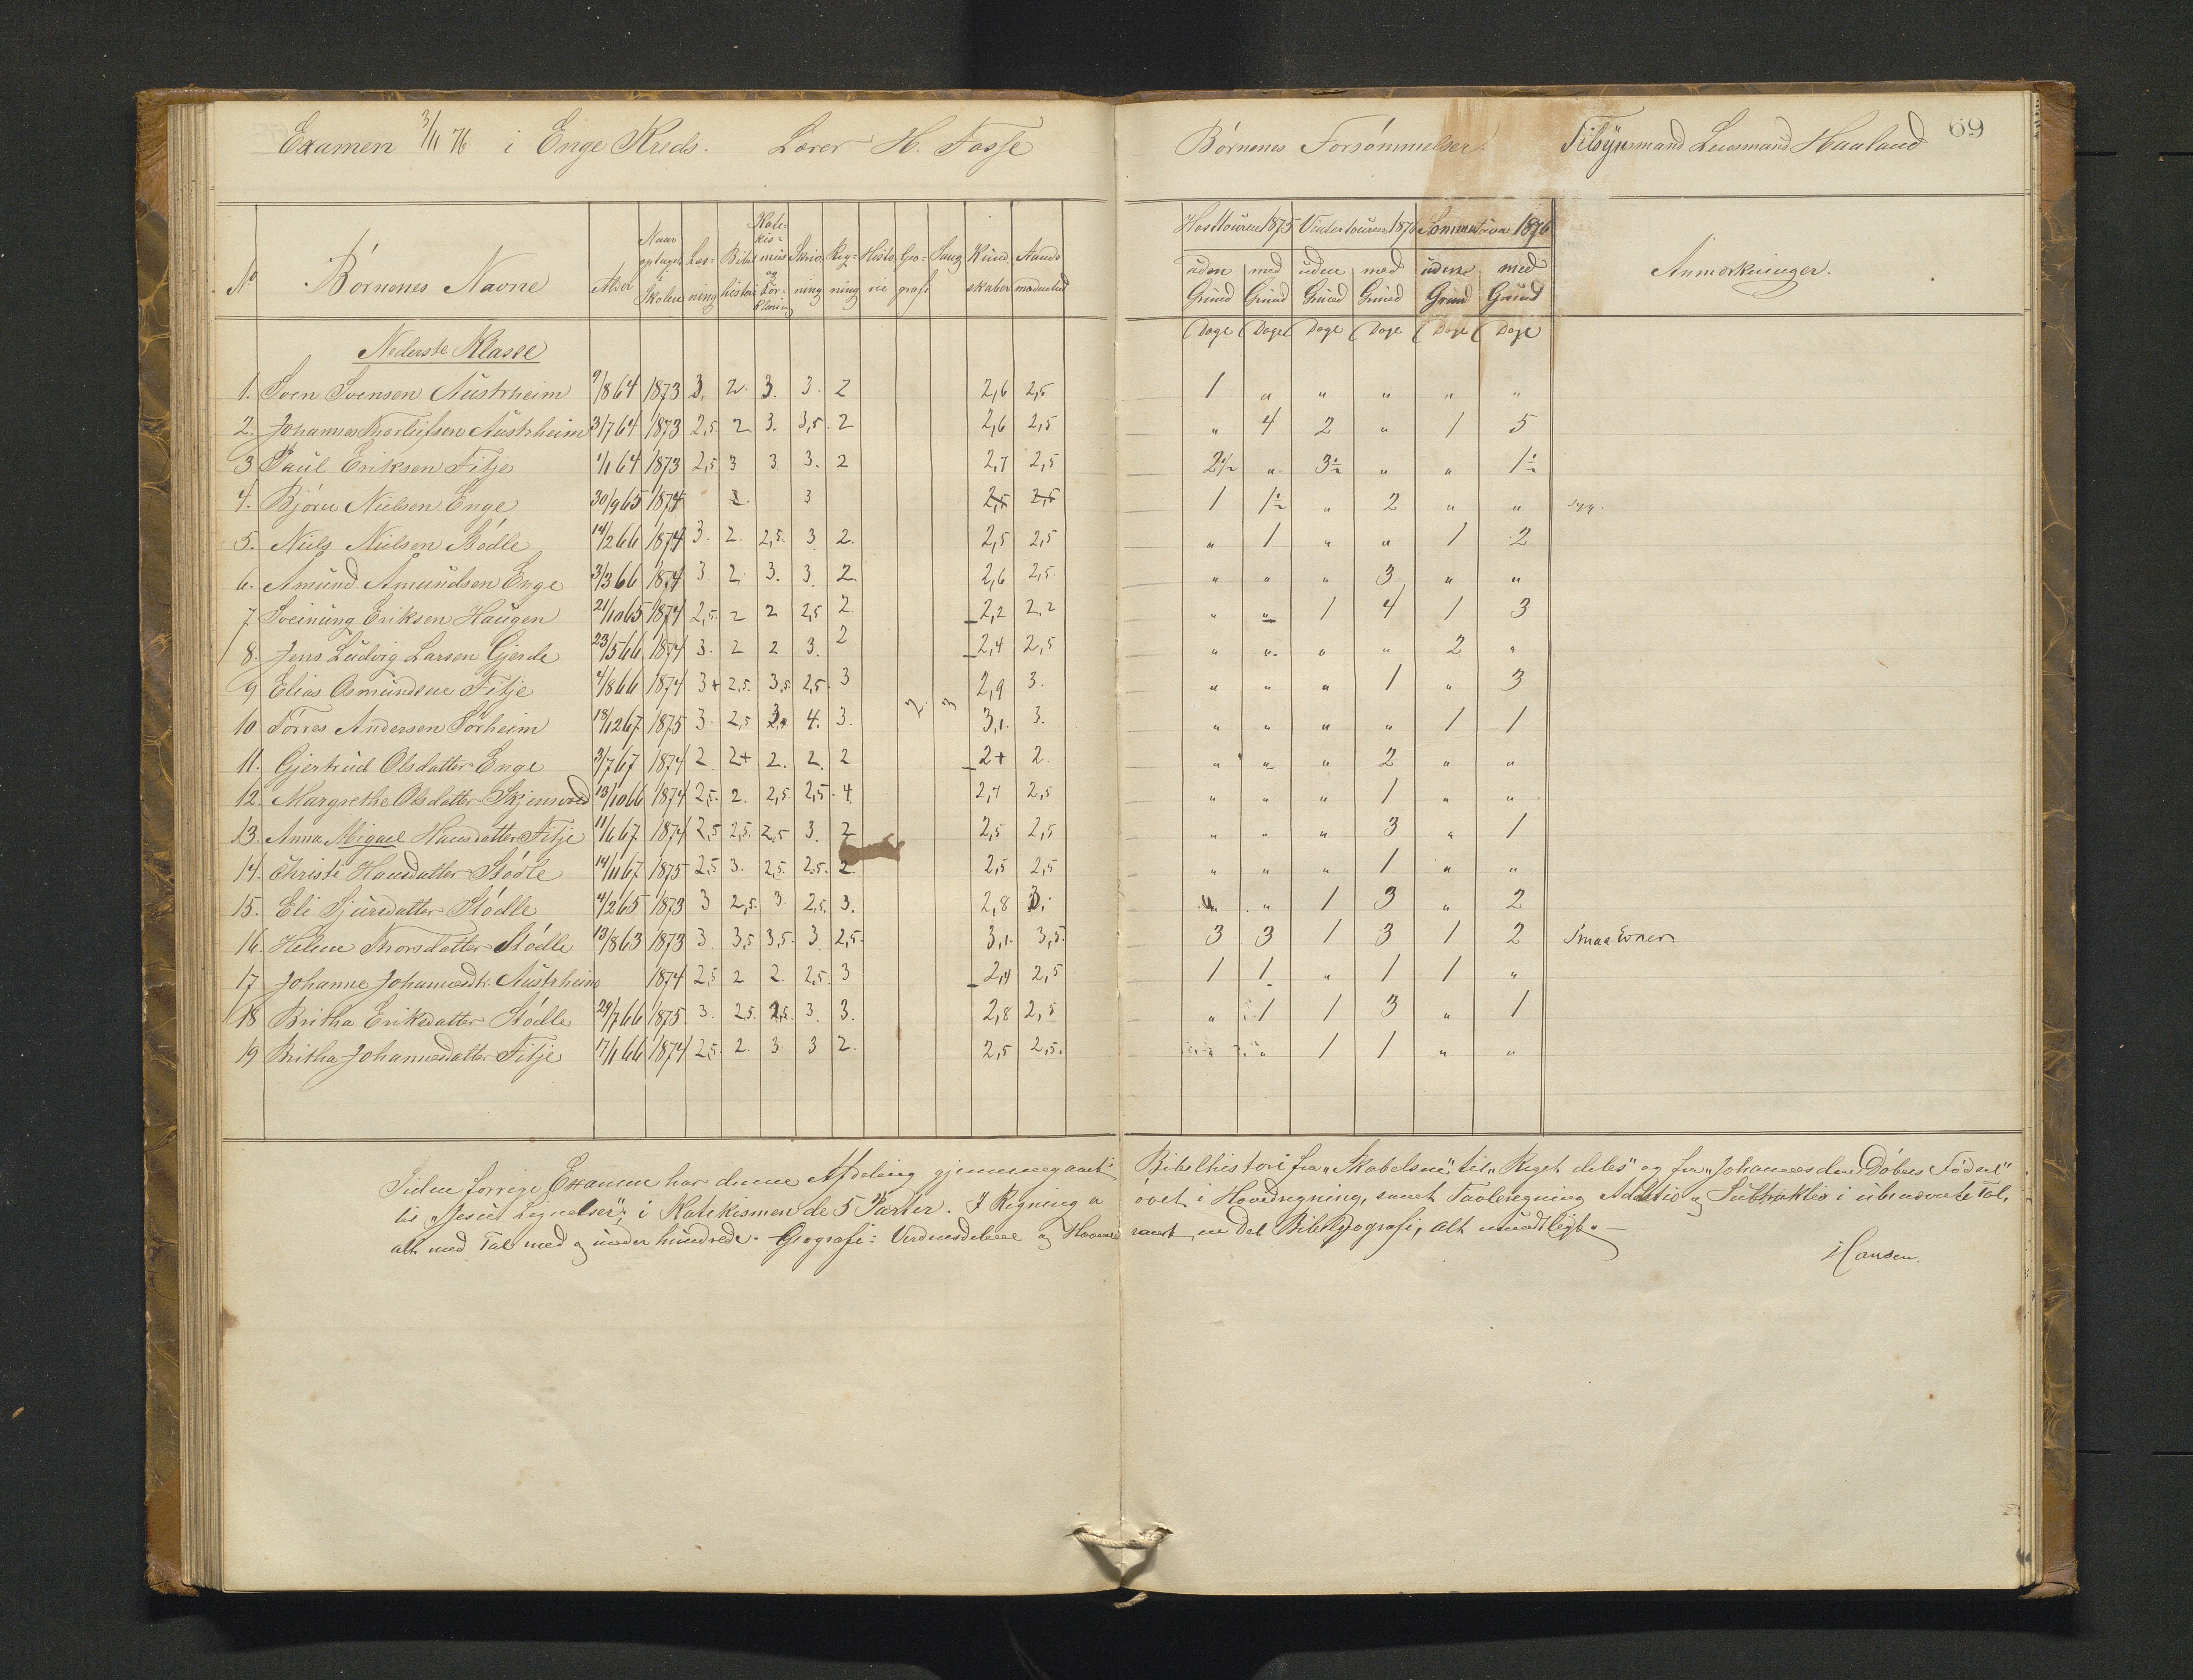 Examen 3/11 76 i Enge Kreds. Lærer H. Fosse
Børnenes Forsømmelser. Tilsynsmand Lensmand Haaland 69
No Børnenes Navne Alder Naar optaget i Skolen Læsning Bibelhistorie Katekismus og Forklaring Skrivning Regning Historie Geografi Sang Kundskaber Aandsmodenhed
Høsttouren 1875 Vintertouren 1876 Sommertouren 1876 Anmærkninger.
uden Grund med Grund uden Grund med Grund uden Grund med Grund
Dage Dage Dage Dage Dage Dage
Nederste Klasse
1. Sven Svensen Austrheim 9/8 64 1873 3. 2. 3. 3. 2 2,6 2,5 1 " " " " "
2. Johannes Thorleifsen Austrheim 3/7 64 1873 2,5. 2 3. 3,5. 2 2,6 2,5 " 4 2 " 1 5
3 Paul Eriksen Fitje 1/1 64 1873 2,5 3 3 3. 2 2,7 2,5 2 1/2 " 3 1/2 " " 1 1/2
4. Bjørn Nielsen Enge 30/9 65 1874 2. 3 2,5 2,5 1 1 1/2 " 2 " " syg.
5. Niels Nielsen Stødle 14/2 66 1874 3. 2. 2,5. 3 2. 2,5 2,5 " 1 " " 1 2
6. Amund Amundsen Enge 3/3 66 1874 3. 2. 3. 3. 2. 2,6 2,5. " " " 3 " "
7 Sveinung Eriksen Haugen 21/10 65 1874 2,5. 2 2 2,5 2 2,2 2,2 " " 1 4 1 3
8. Jens Ludvig Larsen Gjerde 23/5 66 1874 3. 2 2 3. 2 2,4 2,5 " " " " 2 "
9 Elias Osmundsen Fitje 4/8 66 1874 3+ 2,5. 3,5. 2,5. 3 2 3 2,9 3. " " " 1 " 3
10 Torres Andersen Sørheim 18/12 67 1875 3. 2,5 3,5 4. 3. 3,1. 3. " " " " 1 1
11. Gjertrud Olsdatter Enge 3/7 67 1874 2. 2+ 2. 2. 2 2+ 2. " " " 2 " "
12. Margrethe Olsdatter Skjensvold 13/10 66 1874 2,5. 2. 2,5 2,5. 4. 2,7 2,5 " " " 1 " "
13. Anna Migael Hansdatter Fitje 11/6 67 1874 2,5 2,5. 2,5 3. 2 2,5 2,5 " " " 3 " 1
14. Christi Hansdatter Stødle 14/11 67 1875 2,5 3. 2,5. 2,5. 2. 2,5 2,5 " " " 1 " "
15. Eli Sjursdatter Stødle 4/2 65 1873 3 2,5. 3 2,5. 3. 2,8 3. " " 1 3 " 2
16. Helene Thorsdatter Stødle 13/8 63 1873 3. 3,5 3,5. 3. 2,5. 3,1. 3,5. 3 3 1 3 1 2 Smaa Evner.
17 Johanne Johannesdt. Austrheim 1874 2,5 2 2. 2,5. 3 2,4 2,5 1 1. " 1 1 "
18 Britha Eriksdatter Stødle 29/7 66 1875 3. 2,5. 2,5. 3. 3. 2,8 2,5 " 1 1 3 " 1
19 Britha Johannesdatter Fitje 17/1 66 1874 2,5. 2. 3. 3 2. 2,5 2,5. " " 1 1 " "
Siden forrige Examen har denne Afdeling gjennemgaaet: Bibelhistorie fra "Skabelsen" til "Riget deles" og fra "Johannes den Døbers Fødsel"
til "Jesus Lignelser"; i Katekismen de 5 Parter. I Regning øvet i Hovedregning, samt Tavleregning Addition og Subtraktion i ubenævnte Tal,
alt med Tal med og under hundrede. Geografi: Verdensdelene og Havene samt en Del Bibelgeografi, alt mundtligt. —
Hansen.